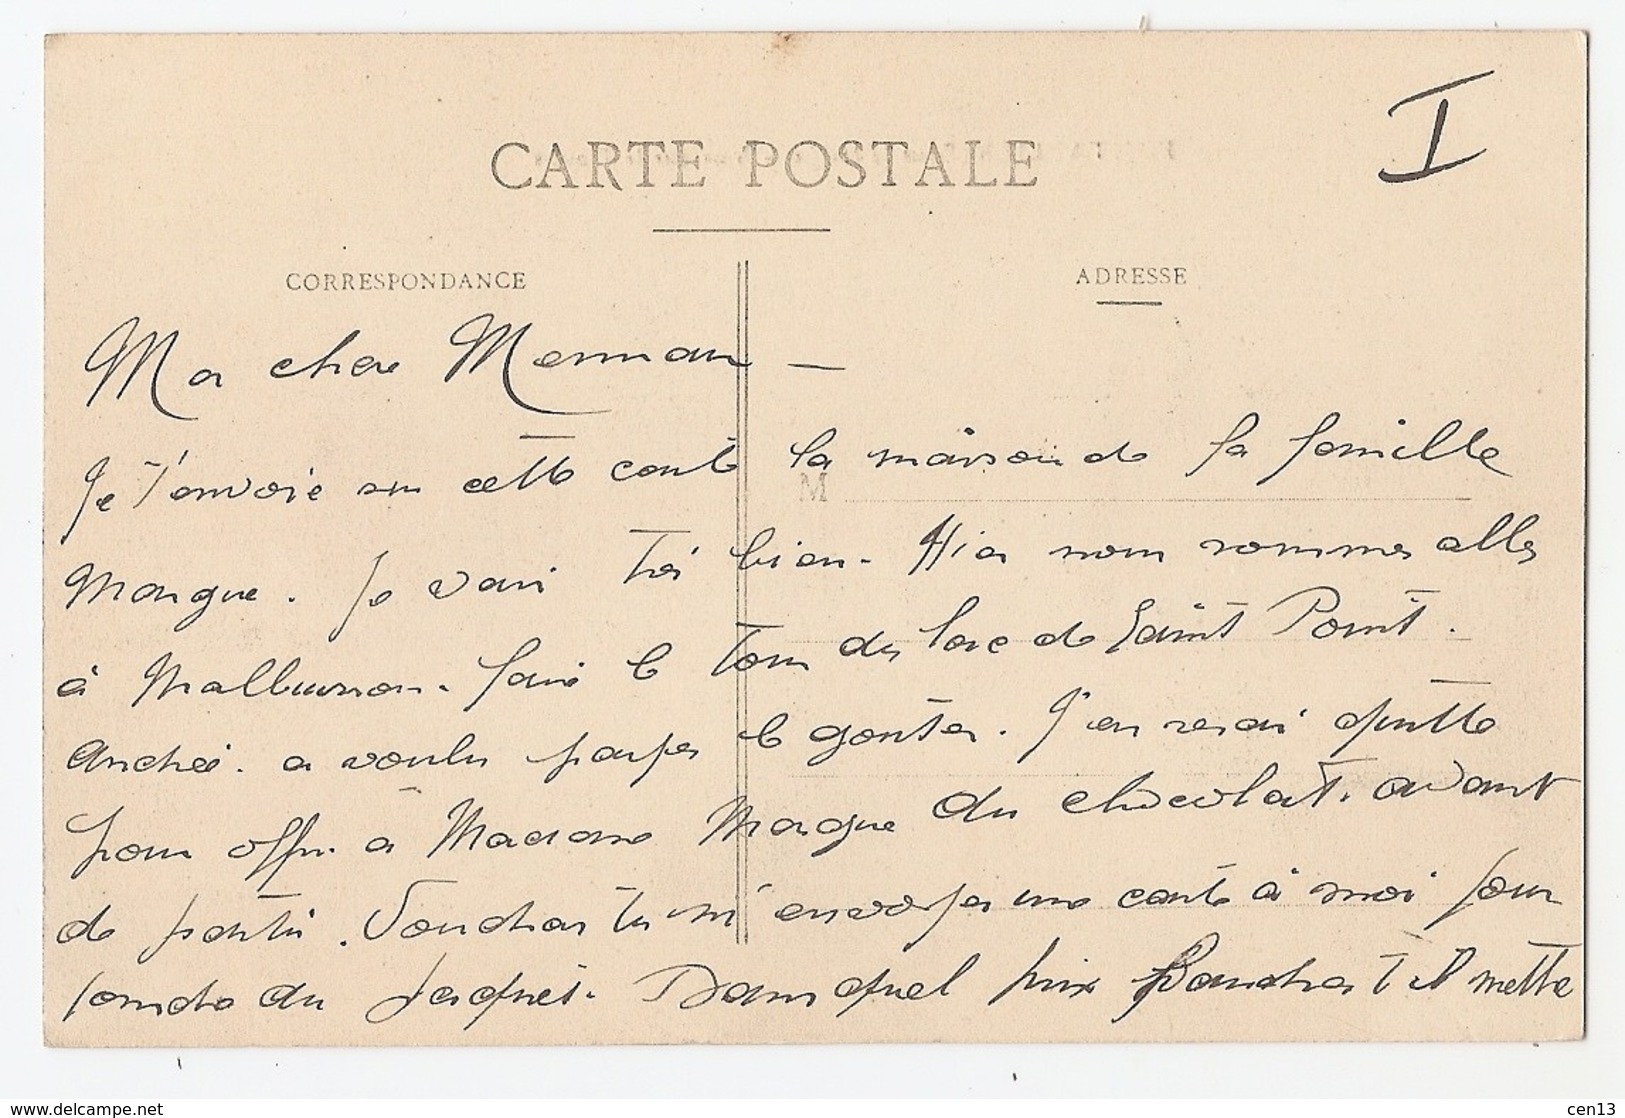 I
CARTE POSTALE
CORRESPONDANCE
ADRESSE
Ma chere Maman —
Je t'envoie sur cette carte la maison de la famille
M
Mangue. Je vais très bien. Hier nous sommes allés
à Malbuisson. faire le tour du lac de Saint Point.
Andrée a voulu payer le gouter. J'en serai quitte
pour offrir à Madame Mangue du chocolat. avant
de partir. Voudras tu m'envoyer une carte à moi pour
du Jacques. Dans quel prix faudra t il mettre
www.delcampe.net
cen13